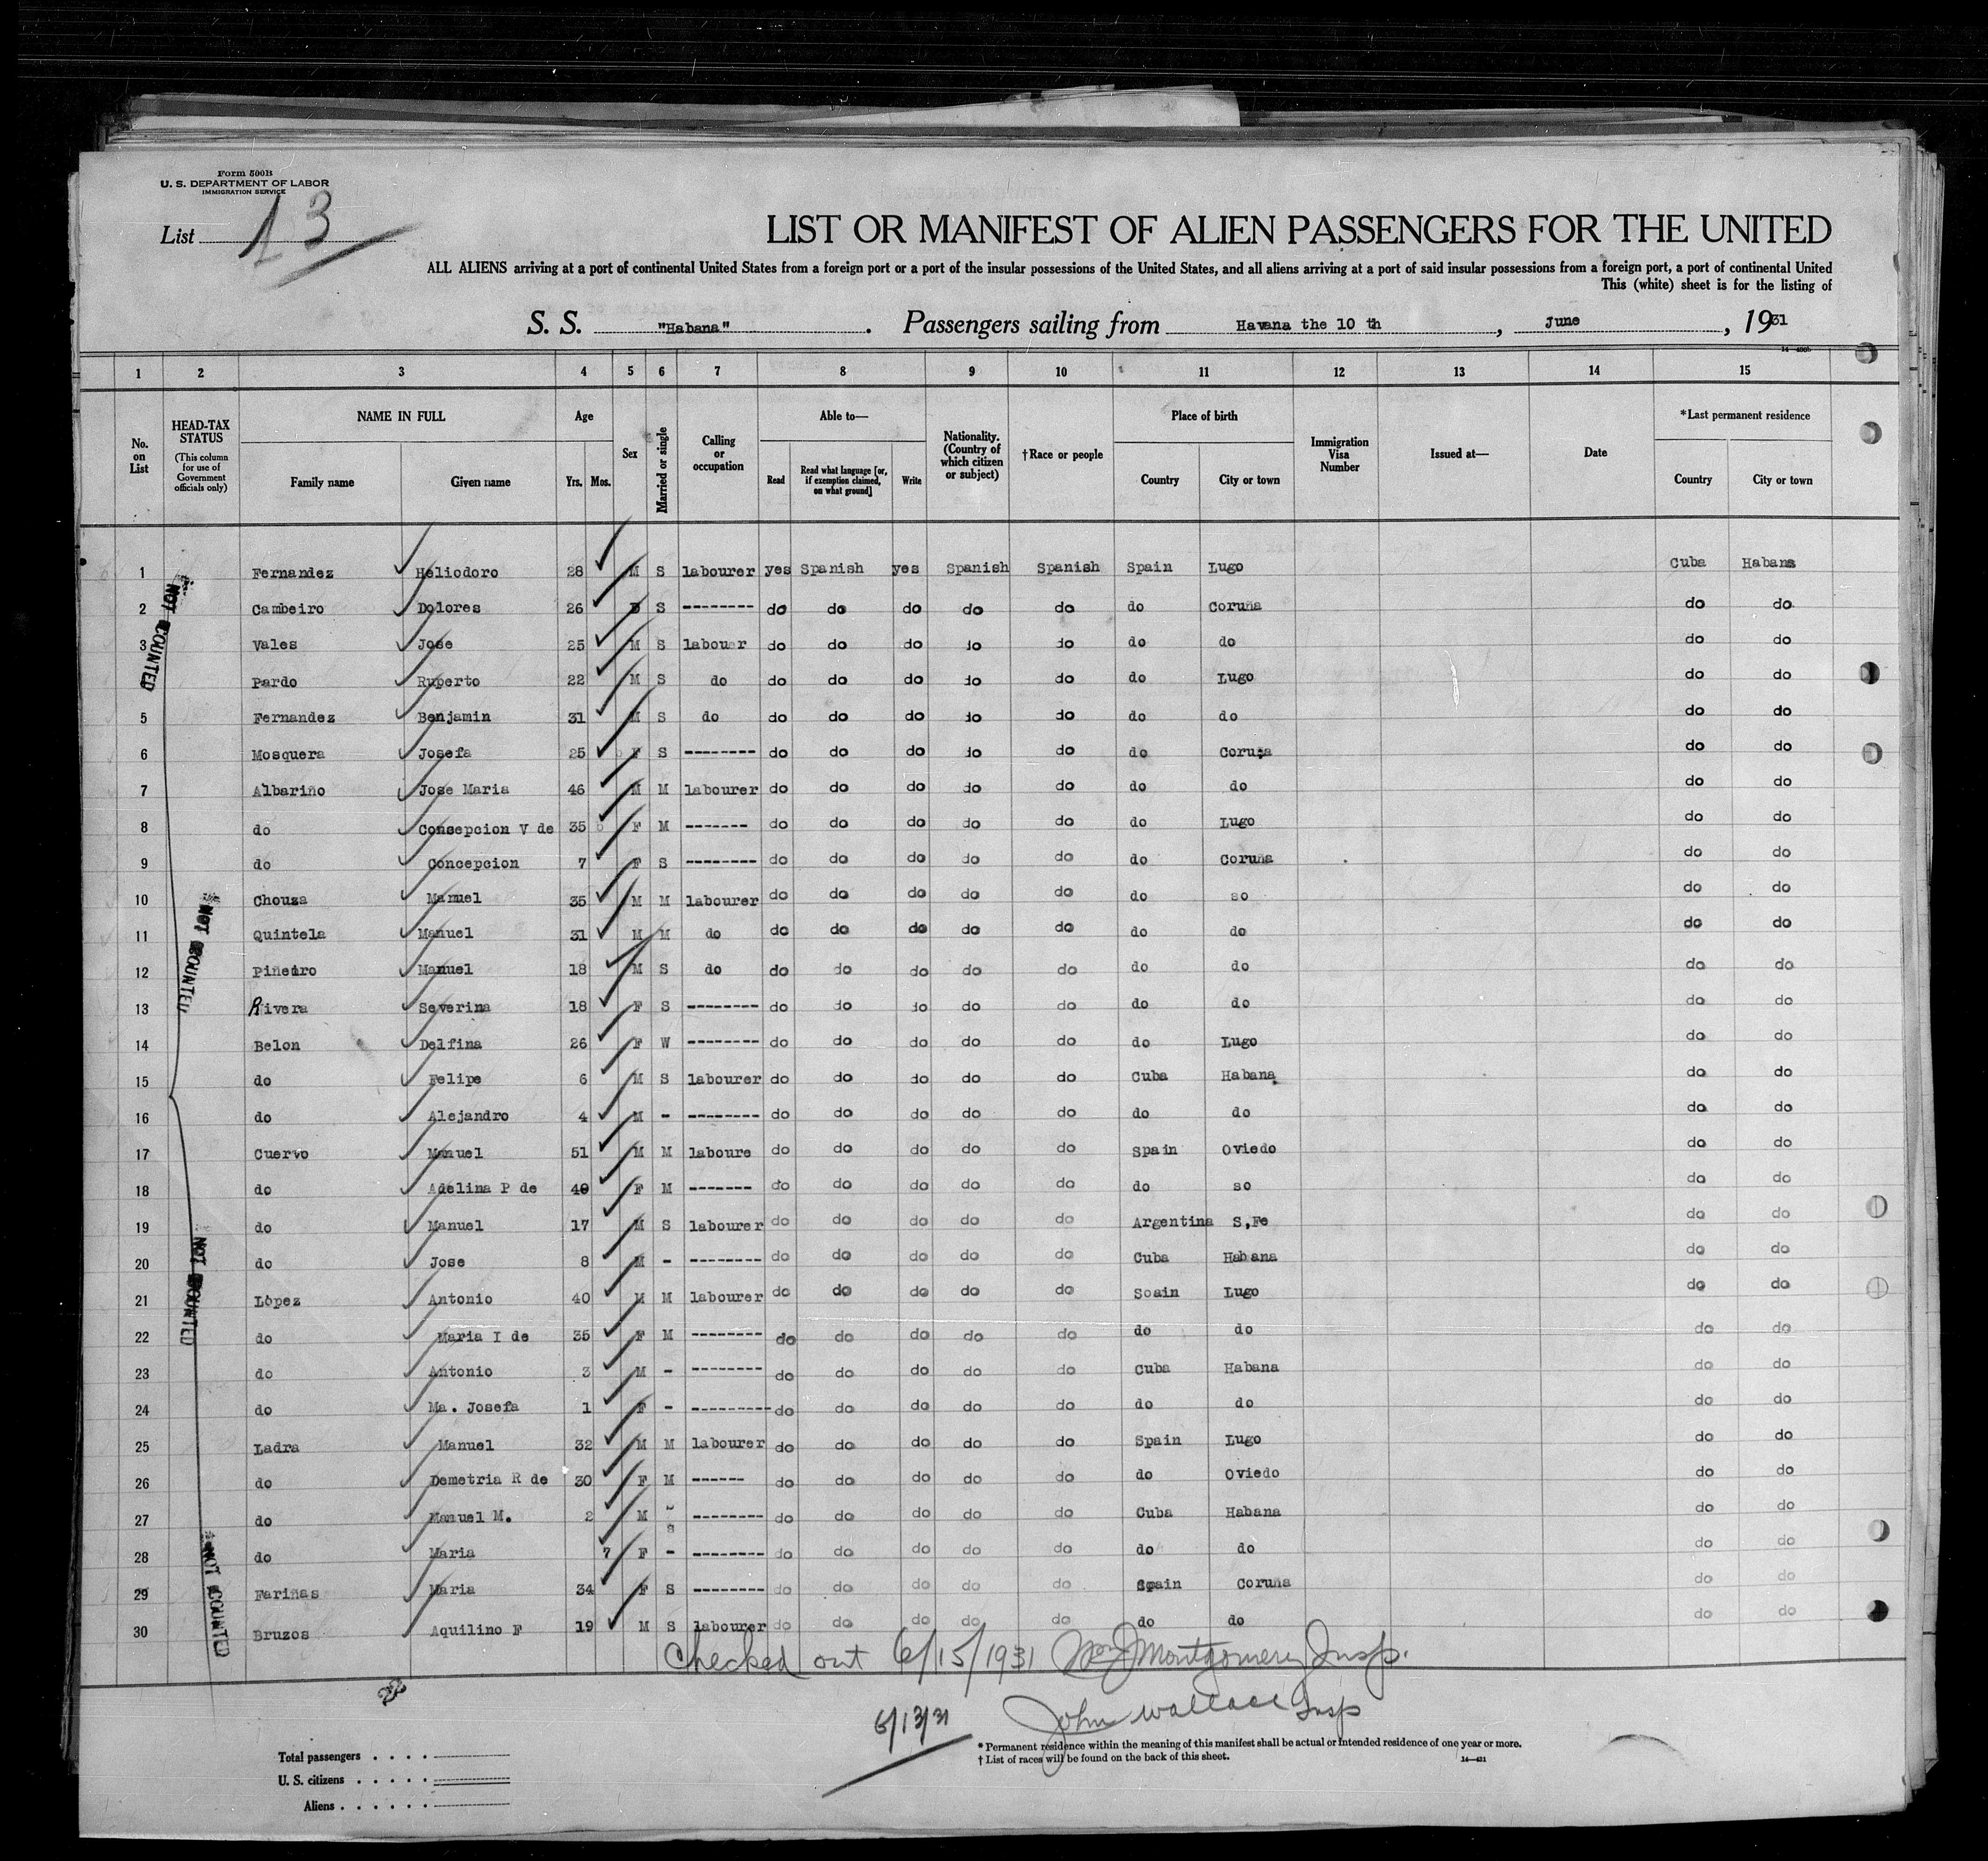 Form 500B
U. S. DEPARTMENT OF LABOR
IMMIGRATION SERVICE
List 13
LIST OR MANIFEST OF ALIEN PASSENGERS FOR THE UNITED
ALL ALIENS arriving at a port of continental United States from a foreign port or a port of the insular possessions of the United States, and all aliens arriving at a port of said insular possessions from a foreign port, a port of continental United
This (white) sheet is for the listing of
S. S. "Habana" . Passengers sailing from Havana the 10 th , June , 1931
1 2 3 4 5 6 7 8 9 10 11 12 13 14 15
No. on List
HEAD-TAX STATUS (This column for use of Government officials only)
NAME IN FULL Family name Given name
Age Yrs. Mos.
Sex
Married or single
Calling or occupation
Able to— Read Read what language [or, if exemption claimed, on what ground] Write
Nationality. (Country of which citizen or subject)
†Race or people
Place of birth Country City or town
Immigration Visa Number
Issued at—
Date
*Last permanent residence Country City or town
1 Fernandez Heliodoro 28 M S labourer yes Spanish yes Spanish Spanish Spain Lugo Cuba Habana
2 Cambeiro Dolores 26 S -------- do do do do do do Coruña do do
3 Vales Jose 25 M S labouer do do do do do do do do do
Pardo Ruperto 22 M S do do do do do do do Lugo do do
5 Fernandez Benjamin 31 M S do do do do do do do do do do
6 Mosquera Josefa 25 F S -------- do do do do do do Coruña do do
7 Albariño Jose Maria 46 M M labourer do do do do do do do do do
8 do Consepcion V de 35 F M ------- do do do do do do Lugo do do
9 do Concepcion 7 F S -------- do do do do do do Coruña do do
10 Chouza Manuel 35 M M labourer do do do do do do so do do
11 Quintela Manuel 31 M M do do do do do do do do do do
12 Piñeiro Manuel 18 M S do do do do do do do do do do
13 Rivera Severina 18 F S -------- do do do do do do do do do
14 Belon Delfina 26 F W -------- do do do do do do Lugo do do
15 do Felipe 6 M S labourer do do do do do Cuba Habana do do
16 do Alejandro 4 M - -------- do do do do do do do do do
17 Cuervo Manuel 51 M M laboure do do do do do Spain Oviedo do do
18 do Adelina P de 40 F M ------- do do do do do do so do do
19 do Manuel 17 M S labourer do do do do do Argentina S,Fe do do
20 do Jose 8 M - -------- do do do do do Cuba Habana do do
21 Lopez Antonio 40 M M labourer do do do do do Soain Lugo do do
22 do Maria I de 35 F M -------- do do do do do do do do do
23 do Antonio 3 M - -------- do do do do do Cuba Habana do do
24 do Ma. Josefa 1 F - --------- do do do do do do do do do
25 Ladra Manuel 32 M M labourer do do do do do Spain Lugo do do
26 do Demetria R de 30 F M ------ do do do do do do Oviedo do do
27 do Manuel M. 2 M -------- do do do do do Cuba Habana do do
28 do Maria 7 F - -------- do do do do do do do do do
29 Fariñas Maria 34 F S -------- do do do do do Spain Coruña do do
30 Bruzos Aquilino F 19 M S labourer do do do do do do do do do
NOT COUNTED
NOT COUNTED
NOT COUNTED
NOT COUNTED
Checked out 6/15/1931 Montgomery Insp.
6/13/31 John Wallace Insp
Total passengers . . . .
U. S. citizens . . . . .
Aliens . . . . . .
* Permanent residence within the meaning of this manifest shall be actual or intended residence of one year or more.
† List of races will be found on the back of this sheet.
14—421